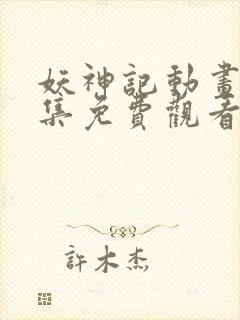 妖神記動畫
集免費觀看
許木杰